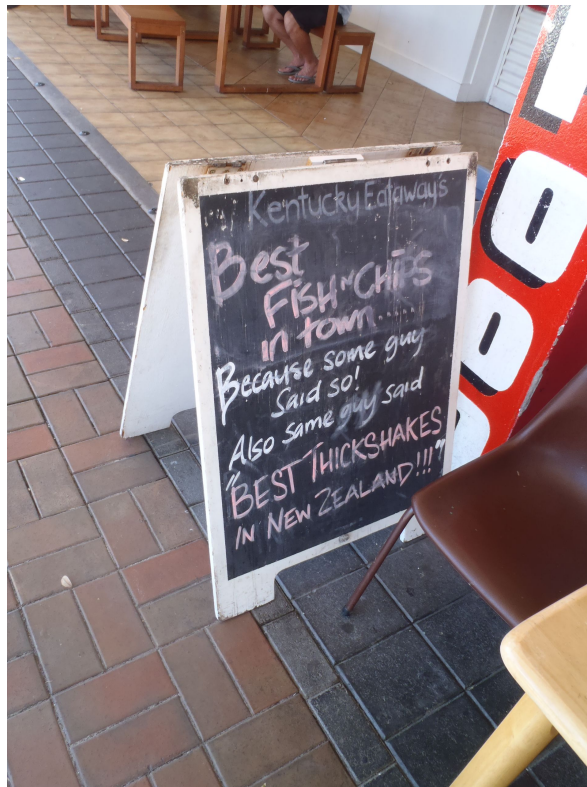 Kentucky Eataway's
Best
FISH N CHIPS
in town......
Because some guy
Said so!
Also same guy said
"BEST THICKSHAKES
IN NEW ZEALAND!!!"